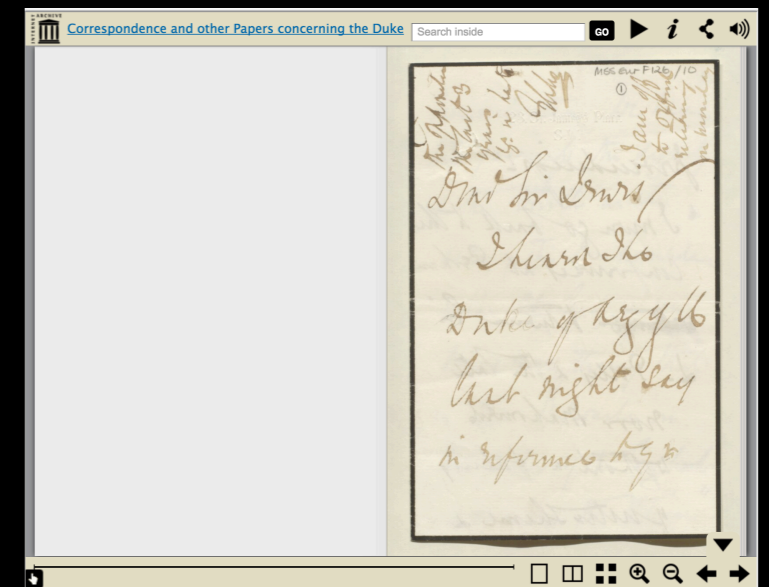 Correspondence and other Papers concerning the Duke
Search inside
GO
MSS Eur F126/10
1
I am off
to
on Monday
Dear Sir Lewis
I heard the
Duke of Argyll
last night say
in reference to yr